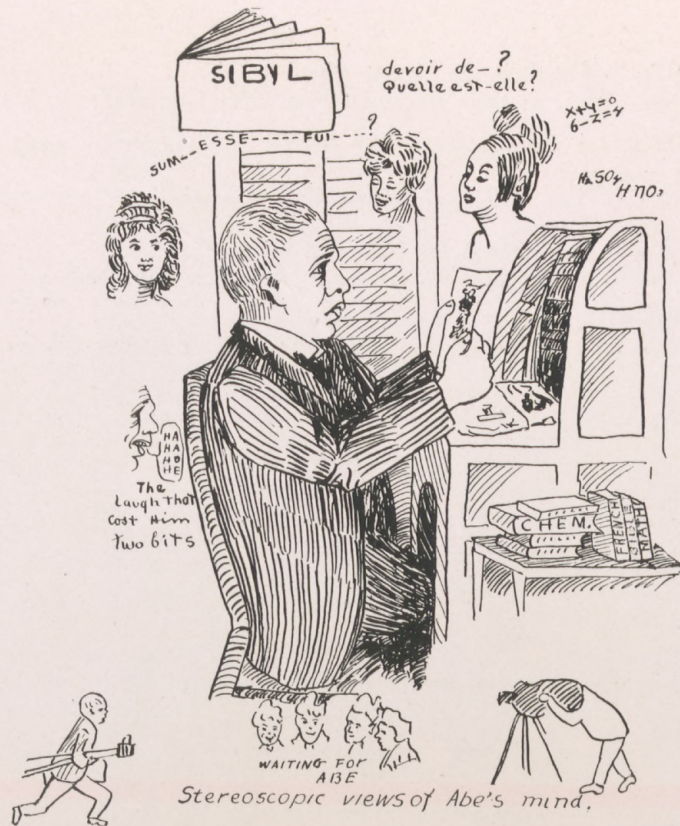 SIBYL
devoir de_?
Quelle est-elle?
x+y=0
6-z=4
SUM--ESSE-----FUI----?
H2SO4
HNO3
HA
HA
HO
HE
The
Laugh that
Cost Him
two bits
CHEM.
FRENCH
BIBLE
MATH
WAITING FOR
ABE
Stereoscopic views of Abe's mind.